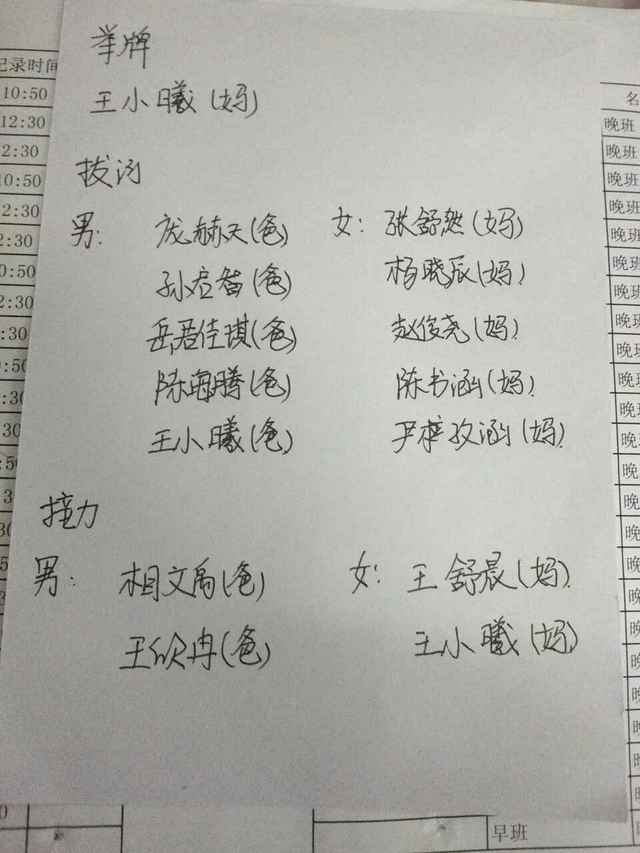 举牌
王小曦(妈)
拔河
男: 庞赫天(爸) 女: 张舒然(妈)
孙启智(爸) 杨晓辰(妈)
岳君佳琪(爸) 赵俊尧(妈)
陈海腾(爸) 陈书涵(妈)
王小曦(爸) 尹梓孜涵(妈)
接力
男: 相文禹(爸) 女: 王舒晨(妈)
王欣冉(爸) 王小曦(妈)
记录时间
10:50
12:30
2:30
10:50
2:30
2:30
0:50
2:30
:30
名
晚班
晚班
晚班
晚班
晚班
晚班
晚班
晚班
晚班
晚班
晚班
早班